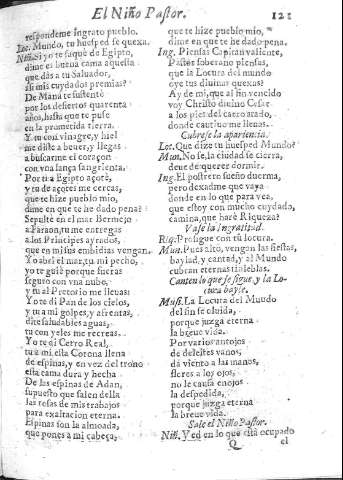 El Niño Pastor. 121
respondeme ingrato pueblo.
Loc. Mundo, tu huesped se quexa.
Niño. Si yo te saquè de Egipto,
dime es buena cama aquesta
que dàs a tu Salvador,
assi mis cuydados premias?
De Manà te sustentè
por los desiertos quarenta
años, hasta que te puse
en la prometida tierra.
Y tu con vinagre, y hiel
me diste a beuer, y llegas
a buscarme el coraçon
con vna lança sangrienta.
Por ti a Egipto açotè,
y tu de açotes me cercas,
que te hize pueblo mio,
dime en que te he dado pena?
Sepultè en el mar Bermejo
a Faraon, tu me entregas
a los Principes ayrados,
que en mi sus embidias vengan.
Yo abri el mar, tu mi pecho,
yo te guiè porque fueras
seguro con vna nube,
y tu al Pretorio me lleuas:
Yo te di Pan de los cielos,
y tu a mi golpes, y afrentas,
dite saludables aguas,
tu con yeles me recreas.
Yo te di Cetro Real,
tu a mi esta Corona llena
de espinas, y en vez del trono
esta cama dura y hecha
De las espinas de Adan,
supuesto que salen della
las rosas de mis trabajos
para exaltacion eterna.
Espinas son la almoada,
que pones a mi cabeça,
que te hize pueblo mio,
dime en que te he dado pena.
Ing. Piensas Capitan valiente,
Pastor soberano piensas,
que la Locura del mundo
oye tus diuinas quexas?
Ay de mi, que al fin vencido
voy Christo diuino Cesar
a los pies del carro atado,
donde cautiuo me lleuas.
Cubrese la apariencia.
Loc. Que dize tu huesped Mundo?
Mun. No se, la ciudad se cierra,
deue de querer dormir.
Ing. El postrero sueño duerma,
pero dexadme que vaya
donde en lo que para vea,
que estoy con mucho cuydado,
camina, que harè Riqueza?
Vase la Ingratitud.
Riq. Prosigue con tu locura.
Mun. Pues alto, vengan las fiestas,
baylad, y cantad, y al Mundo
cubran eternas tinieblas.
Canten lo que se sigue y la Lo-
cura bayle.
Musi. La Locura del Mundo
del fin se oluida,
porque juzga eterna
la breue vida.
Por varios antojos
de deleites vanos,
dà viento a las manos,
flores a los ojos,
no le causa enojos
la despedida,
porque juzga eterna
la breue vida.
Sale el Niño Pastor.
Niñ. Y ed en lo que està ocupado
Q el